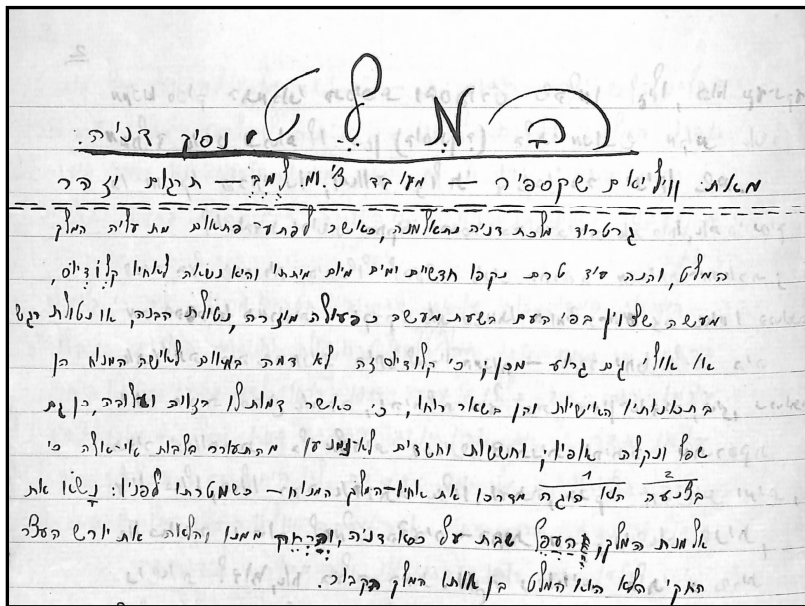 הָמְלֶט נסיך דניה:
מאת: וויליאם שקספיר — מעובד צ'. ומ. לֶמְבּ — תרגום יצהר
גרטרוד מלכת דניה נתאלמנה, כאשר לפתע פתאום מת עליה המלך
המלט, והנה עוד טרם נקפו חדשיים ימים מיום מיתתו והיא נשאה לאחיו קלודיוס,
מעשה שצוין בפי העם בשעת מעשה כפעולה מוזרה, נטולת הבנה, או נטולת רגש
או אולי גם גרוע מכן; כי קלודיוס זה לא דמה במאום לאישה המנוח הן
בתכונותיו האישיות והן בשאר רוחו, כי, כאשר דמות לו בזויה ועלובה, הן גם
שפל ונקלה באפיו; וחששות וחשדים לא נמנעו מהתעורר בלבות אי־אלה כי
בצנעה הוא הוגה מדרכו את אחיו־המלך המנוח — כשמטרתו לפניו: נָשׂוֹא את
אלמנת המלך, העפל שבת על כסא דניה, והרחק ממנו והלאה את יורש העצר
החקי הלא הוא המלט בן אותו המלך הקבור.